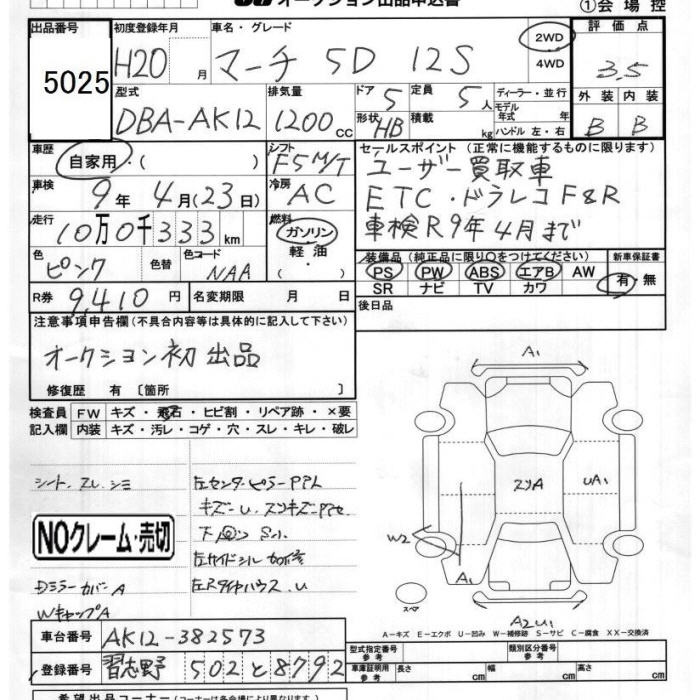 オークション出品申込書
①会場控
出品番号
5025
初度登録年月
H20 月
車名・グレード
マーチ 5D 12S
2WD
4WD
評価点
3.5
外装 内装
B B
型式
DBA-AK12
排気量
1200 cc
ドア 5
定員 5人
形状 HB
積載 kg
ディーラー・並行
モデル年式 年
ハンドル 左・右
車歴
自家用・( )
シフト
F5M/T
車検
9年 4月(23日)
冷房
AC
走行
10万0千333km
燃料
ガソリン
軽油
色
ピンク
色替
色コード
NAA
R券 9,410円
名変期限 月 日
セールスポイント(正常に機能するものに限ります)
ユーザー買取車
ETC・ドラレコF&R
車検R9年4月まで
装備品(純正品に限り○をつけてください)
PS PW ABS エアB AW
SR ナビ TV カワ
新車保証書
有・無
後日品
注意事項申告欄(不具合内容等は具体的に記入して下さい)
オークション初出品
修復歴 有 〔箇所 〕
検査員記入欄
FW キズ・飛石・ヒビ割・リペア跡・×要
内装 キズ・汚レ・コゲ・穴・スレ・キレ・破レ
シート、スレ、シミ
NOクレーム・売切
Dミラーカバー A
WキャップA
左センターピラー
キズー U.
左サイドシル
左Rタイヤハウス、U
A1
スリA
UA1
W2
A1
スペア
A2U1
A-キズ E-エクボ U-凹み W-補修跡 S-サビ C-腐食 XX-交換済
車台番号 AK12-382573
登録番号 習志野 502 と 8792
型式指定番号 参考
類別区分番号 参考
車庫証明用 参考
長さ cm
幅 cm
高さ cm
希望出品コーナー(コーナーは各会場により異なります)